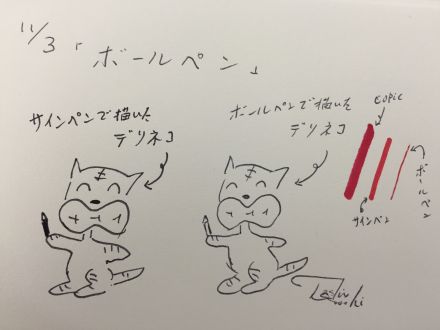 11/3「ボールペン」
サインペンで描いた
デリネコ
ボールペンで描いた
デリネコ
copic
サインペン
ボールペン